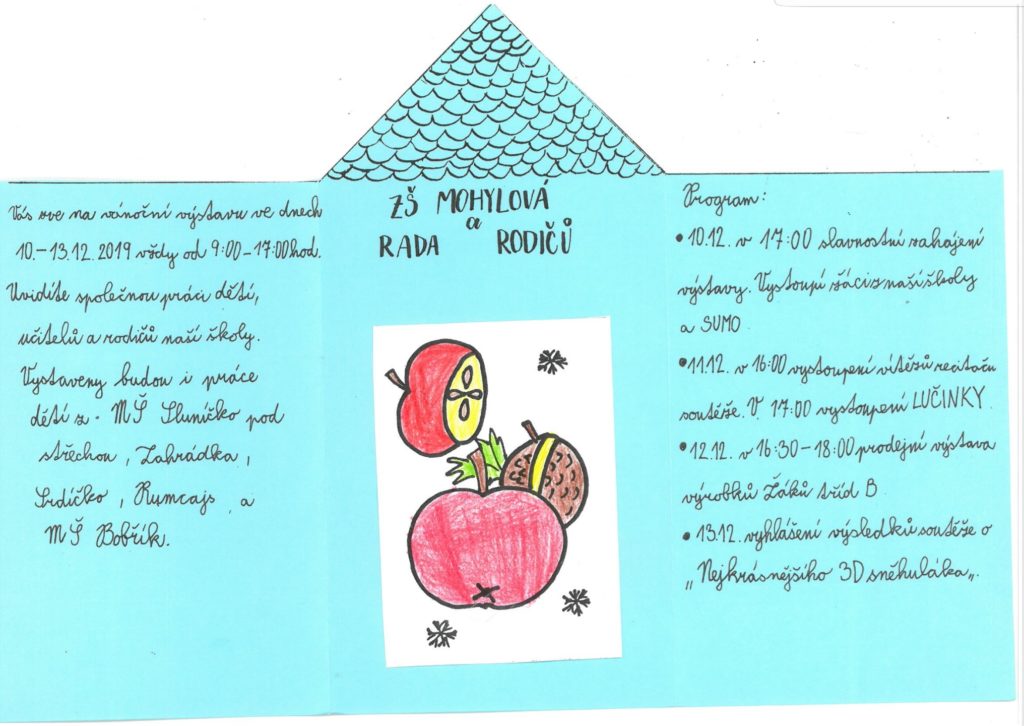 ZŠ MOHYLOVÁ
a
RADA RODIČŮ
Vás zve na vánoční výstavu ve dnech
10.-13.12.2019 vždy od 9:00-17:00hod.
Uvidíte společnou práci dětí,
učitelů a rodičů naší školy.
Vystaveny budou i práce
dětí z. MŠ Sluníčko pod
střechou, Zahrádka,
Srdíčko, Rumcajs a
MŠ Bobřík.
Program:
• 10.12. v 17:00 slavnostní zahájení
výstavy. Vystoupí žáci z naší školy
a SUMO.
• 11.12. v 16:00 vystoupení vítězů recitační
soutěže. V 17:00 vystoupení LUČINKY.
• 12.12. v 16:30-18:00 prodejní výstava
výrobků Žáků tříd B
• 13.12. vyhlášení výsledků soutěže o
„Nejkrásnějšího 3D sněhuláka“.